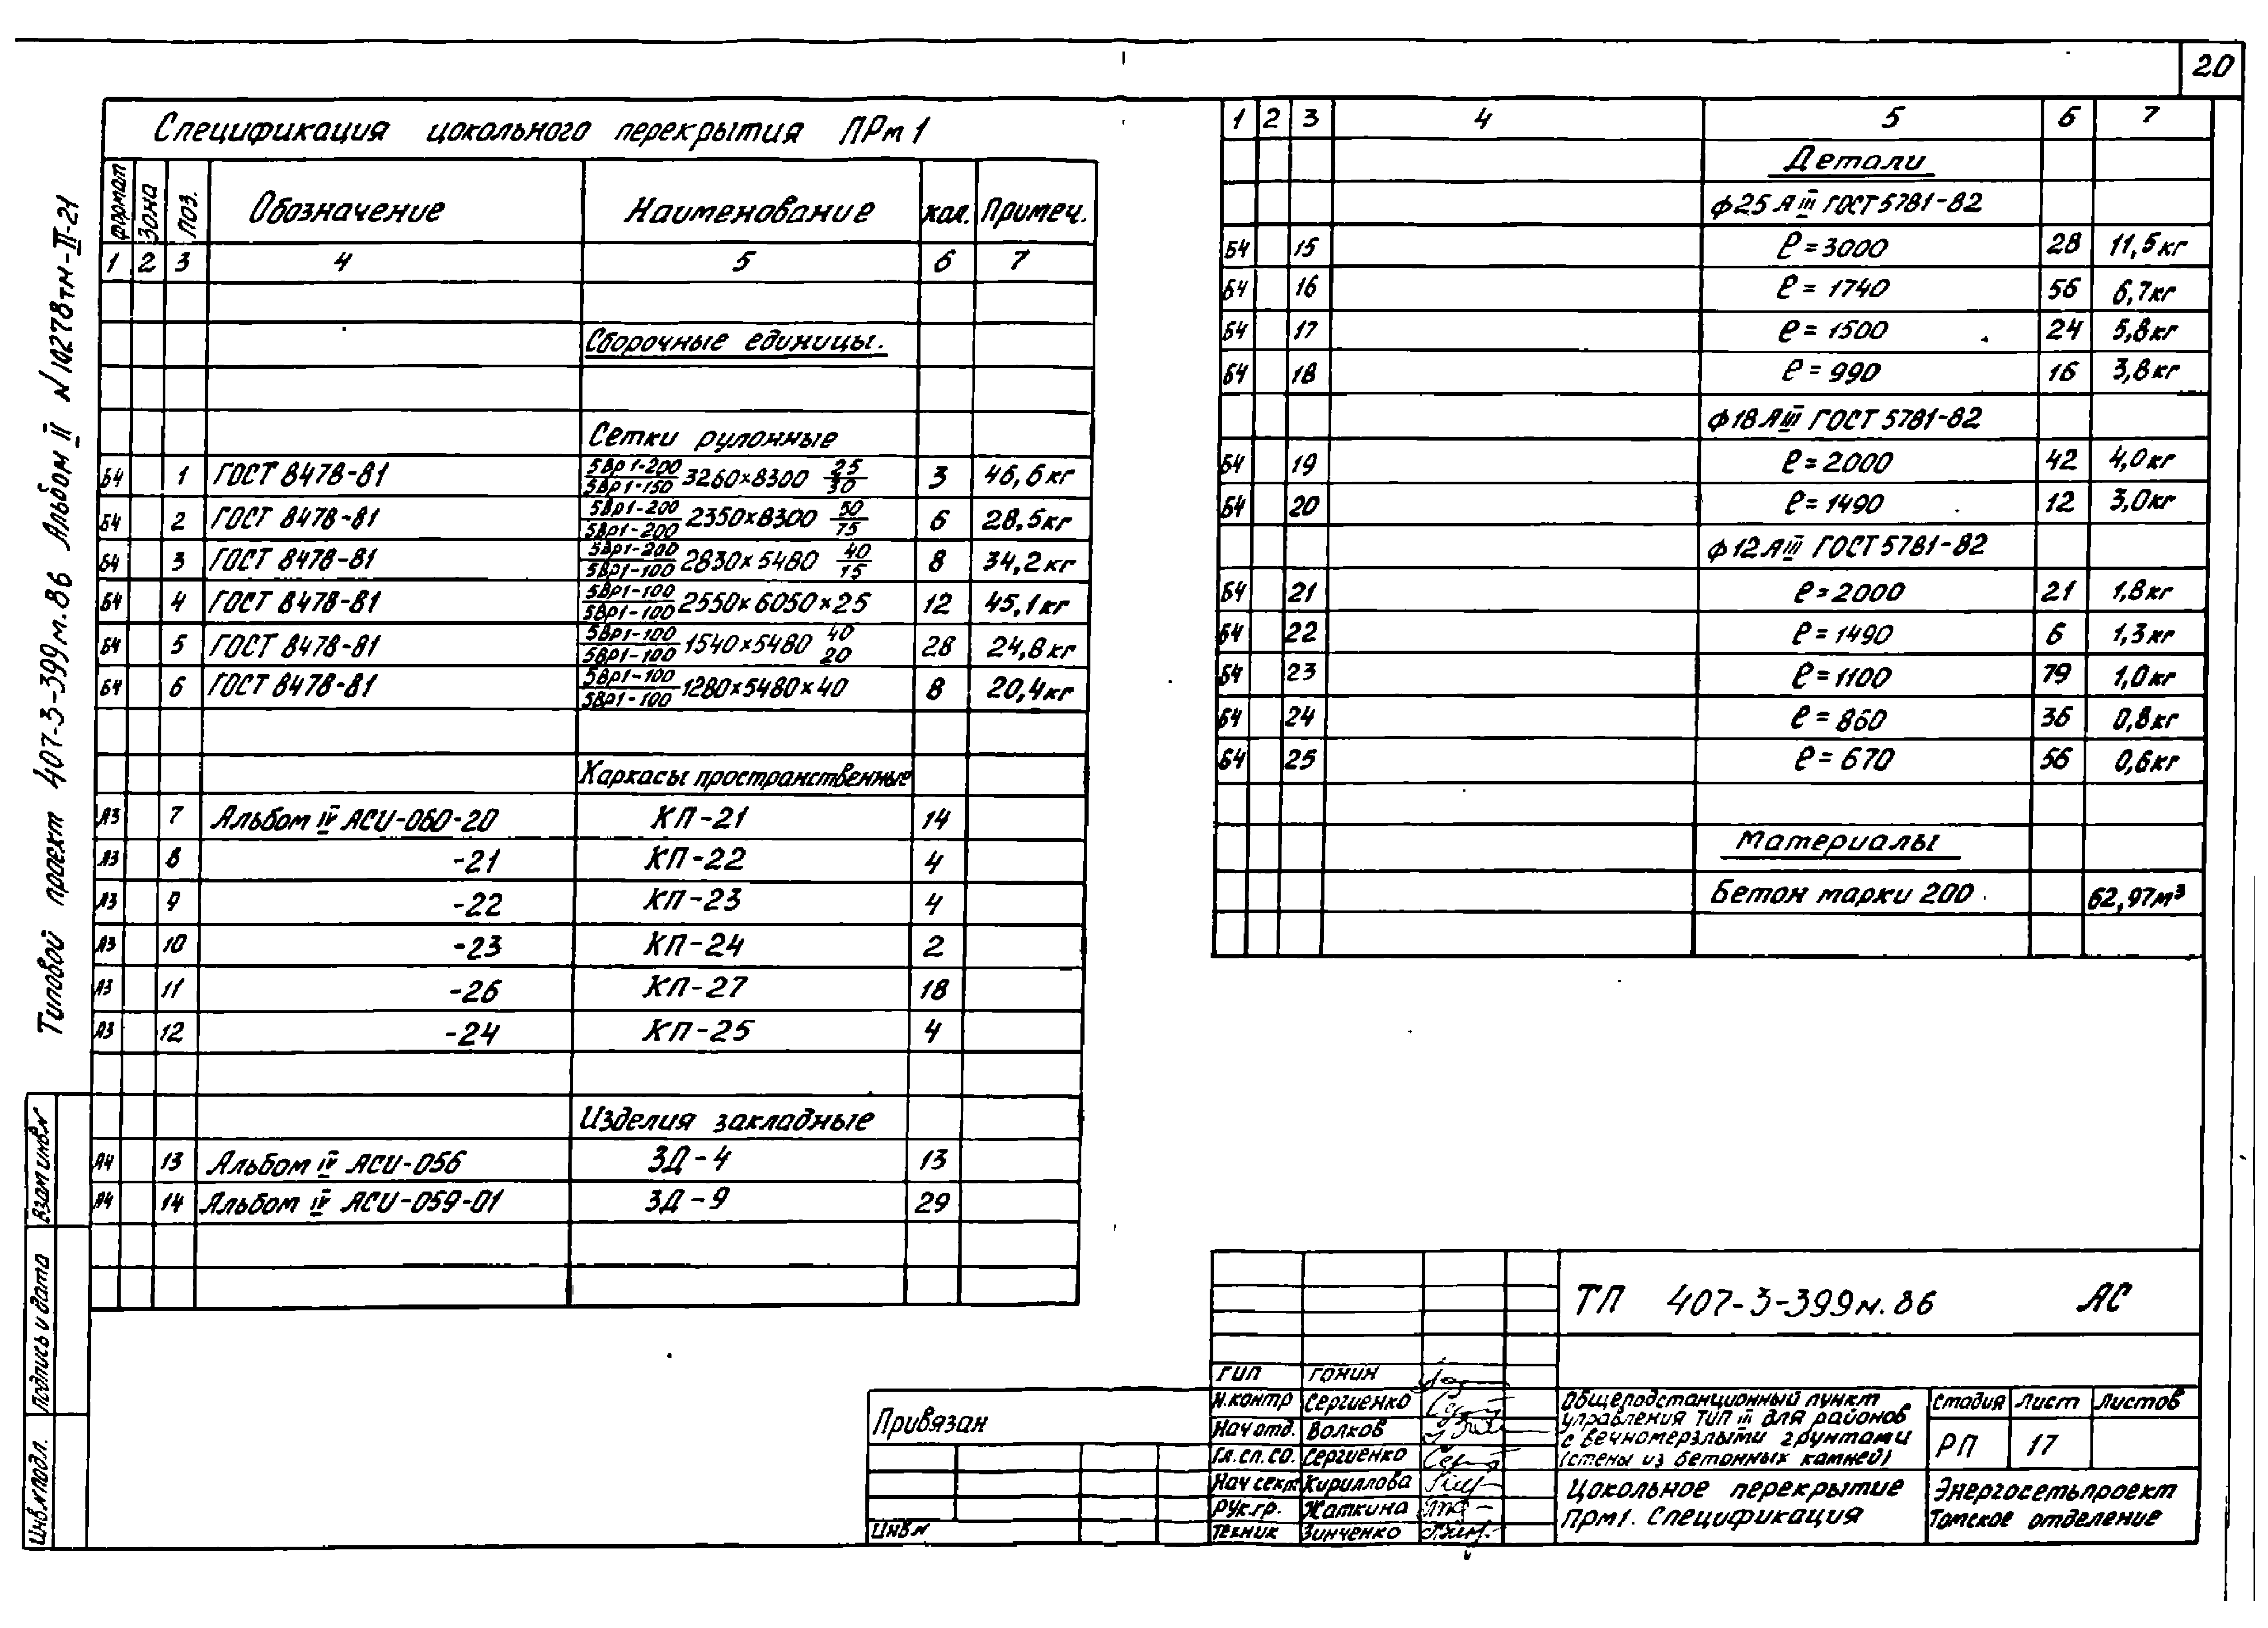 20
Спецификация цокольного перекрытия ПРм1
Формат Зона Поз. Обозначение Наименование кол. Примеч.
1 2 3 4 5 6 7
Сборочные единицы.
Сетки рулонные
Б4 1 ГОСТ 8478-81 5Вр1-200/5Вр1-150 3260×8300 25/30 3 46,6кг
Б4 2 ГОСТ 8478-81 5Вр1-200/5Вр1-200 2350×8300 50/75 6 28,5кг
Б4 3 ГОСТ 8478-81 5Вр1-200/5Вр1-100 2830×5480 40/15 8 34,2кг
Б4 4 ГОСТ 8478-81 5Вр1-100/5Вр1-100 2550×6050×25 12 45,1кг
Б4 5 ГОСТ 8478-81 5Вр1-100/5Вр1-100 1540×5480 40/20 28 24,8кг
Б4 6 ГОСТ 8478-81 5Вр1-100/5Вр1-100 1280×5480×40 8 20,4кг
Каркасы пространственные
А3 7 Альбом IV АСИ-060-20 КП-21 14
А3 8 -21 КП-22 4
А3 9 -22 КП-23 4
А3 10 -23 КП-24 2
А3 11 -26 КП-27 18
А3 12 -24 КП-25 4
Изделия закладные
А4 13 Альбом IV АСИ-056 ЗД-4 13
А4 14 Альбом IV АСИ-059-01 ЗД-9 29
1 2 3 4 5 6 7
Детали
ф25 АIII ГОСТ 5781-82
Б4 15 ℓ=3000 28 11,5кг
Б4 16 ℓ=1740 56 6,7кг
Б4 17 ℓ=1500 24 5,8кг
Б4 18 ℓ=990 16 3,8кг
ф18 АIII ГОСТ 5781-82
Б4 19 ℓ=2000 42 4,0кг
Б4 20 ℓ=1490 12 3,0кг
ф12 АIII ГОСТ 5781-82
Б4 21 ℓ=2000 21 1,8кг
Б4 22 ℓ=1490 6 1,3кг
Б4 23 ℓ=1100 79 1,0кг
Б4 24 ℓ=860 36 0,8кг
Б4 25 ℓ=670 56 0,6кг
Материалы
Бетон марки 200 62,97м³
Типовой проект 407-3-399м.86 Альбом II N10278тм-II-21
Взам инв.N
Подпись и дата
Инв.N подл.
Привязан
Инв.N
ТП 407-3-399м.86 АС
ГИП Гонин
Н.контр Сергиенко
Нач отд. Волков
Гл.сп.со. Сергиенко
Нач сект Кириллова
Рук.гр. Жаткина
Техник Зинченко
Общеподстанционный пункт
управления тип III для районов
с вечномерзлыми грунтами
(стены из бетонных камней)
Стадия Лист Листов
РП 17
Цокольное перекрытие
Прм1. Спецификация
Энергосетьпроект
Томское отделение